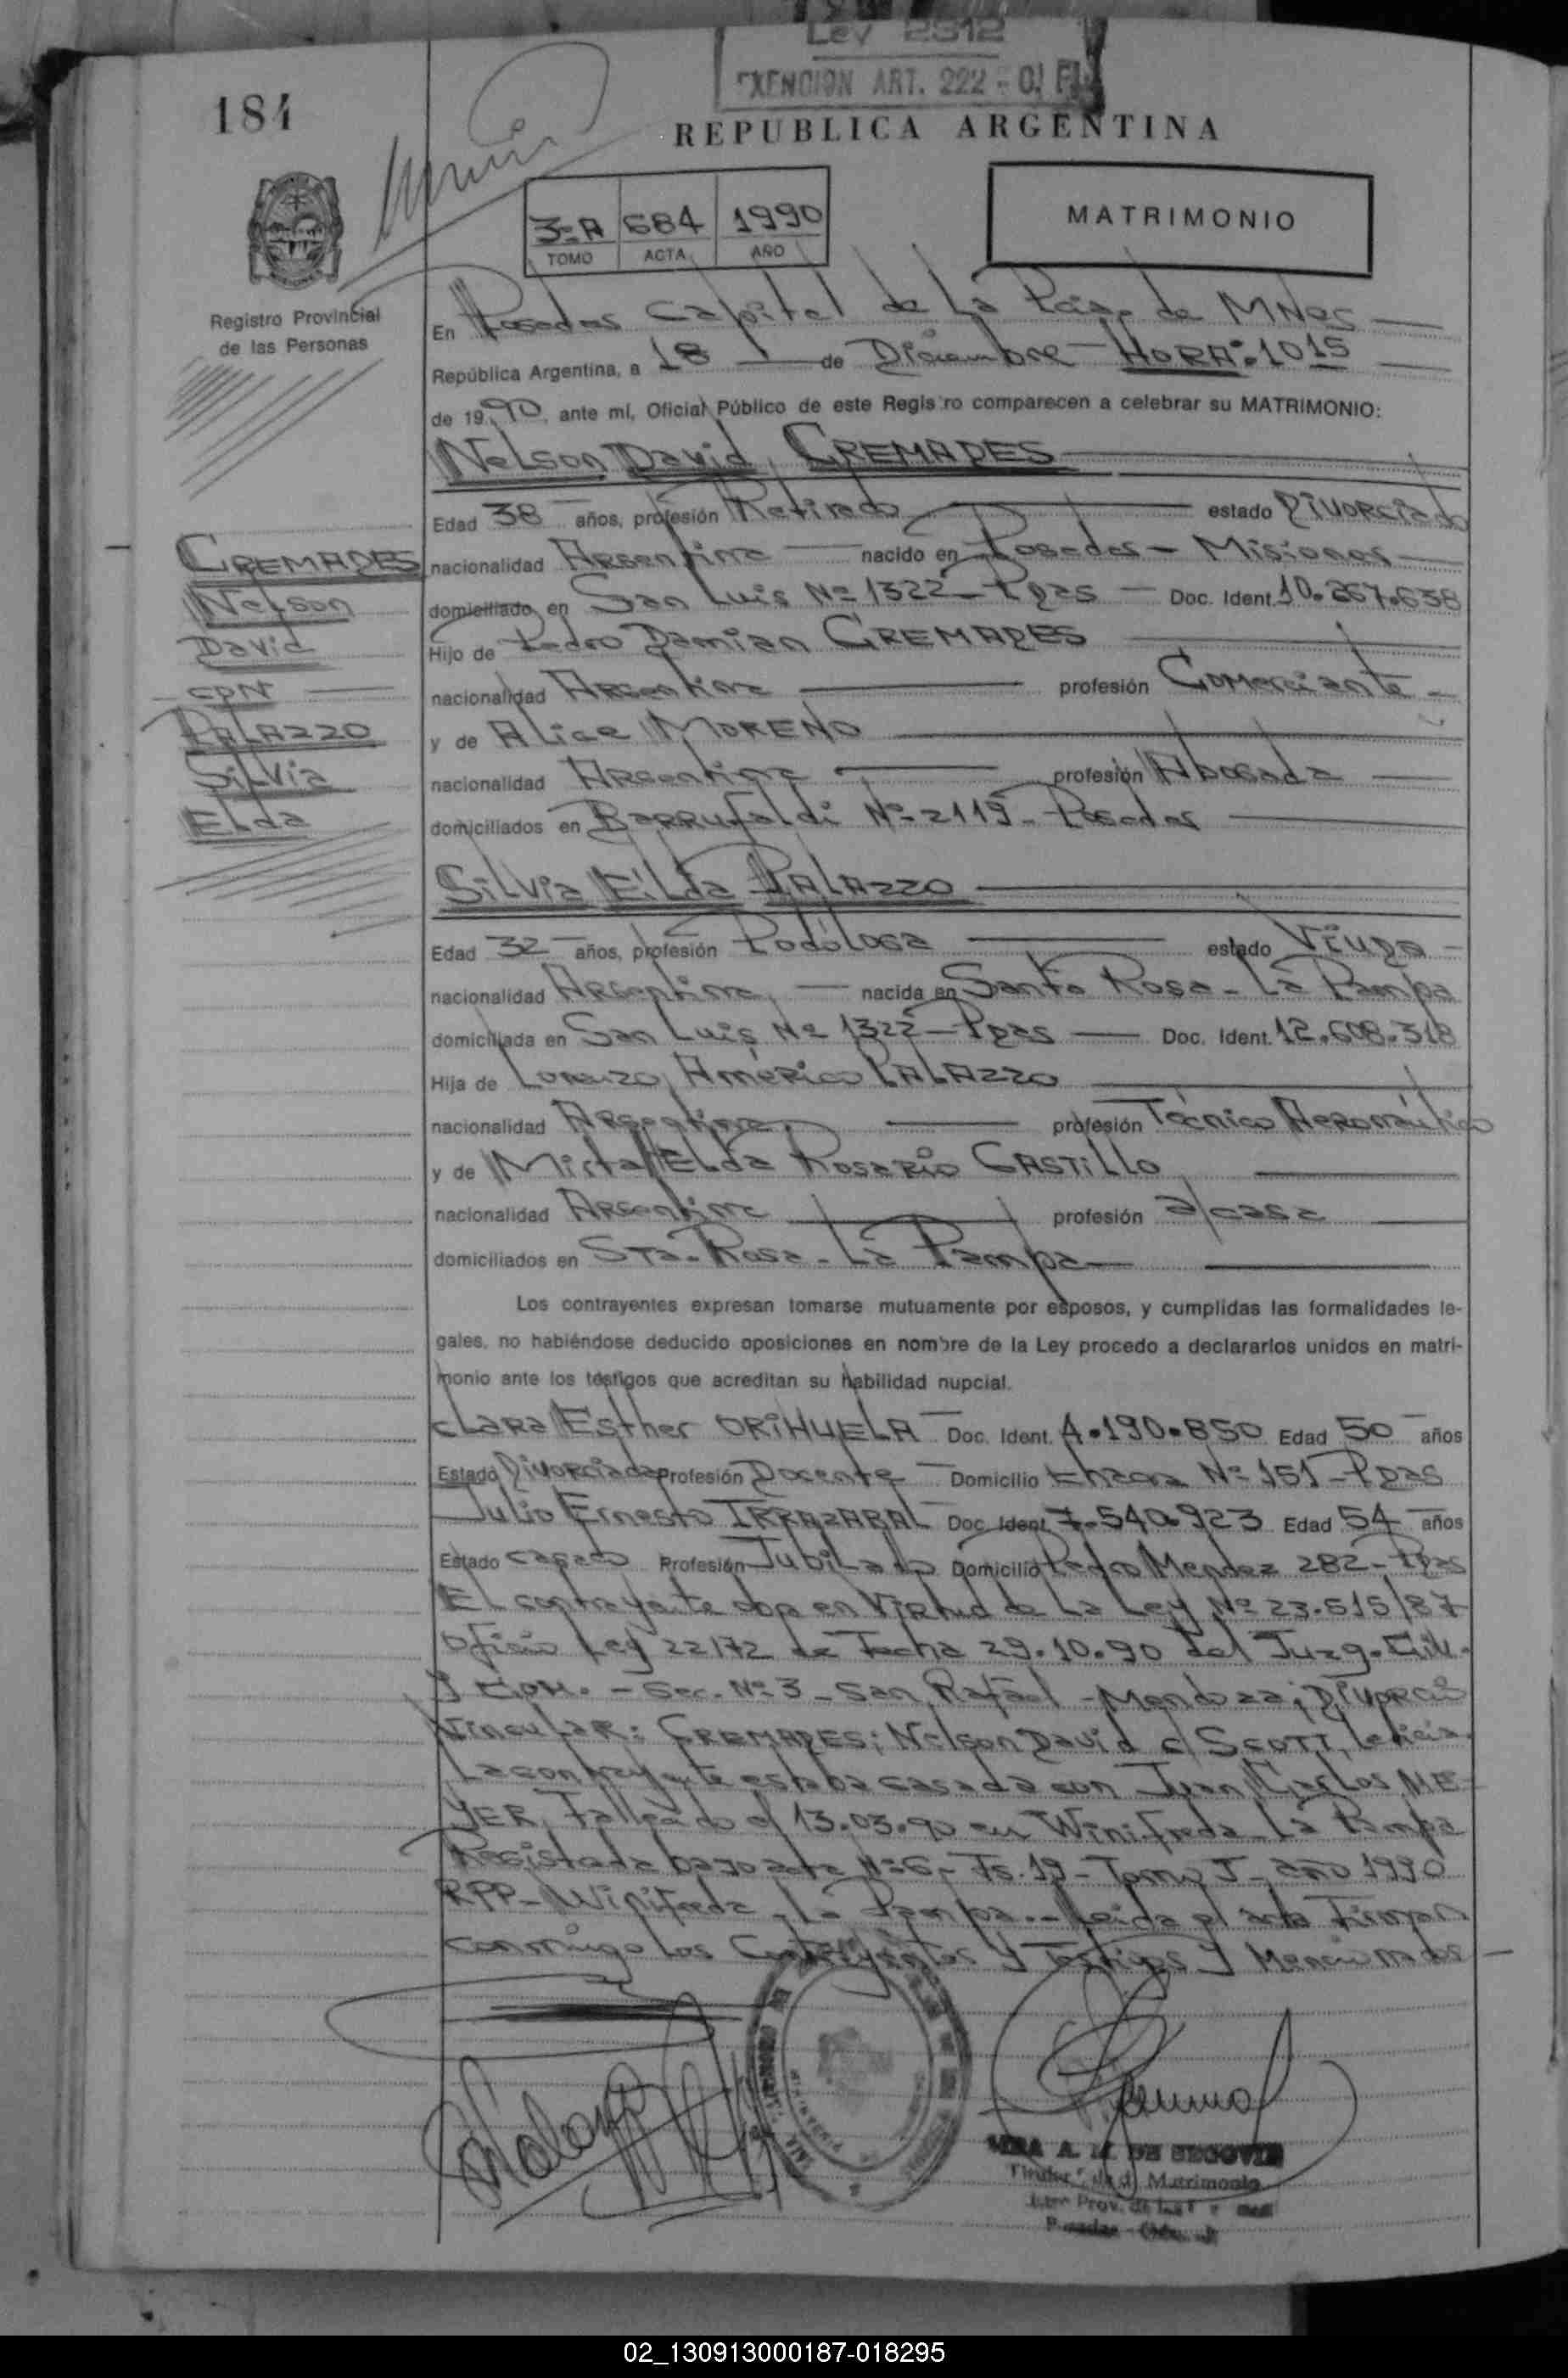 Ley 2312
EXENCION ART. 222 - C. F.
184
REPUBLICA ARGENTINA
3=A 684 1990
TOMO ACTA AÑO
MATRIMONIO
Registro Provincial
de las Personas
En Posadas Capital de La Pcia. de MNes
República Argentina, a 18 de Diciembre HORA: 1015
de 1990, ante mí, Oficial Público de este Registro comparecen a celebrar su MATRIMONIO:
Nelson David CREMADES
Edad 38 años, profesión Retirado estado Divorciado
nacionalidad Argentina nacido en Posadas - Misiones
domiciliado en San Luis Nº 1322 - Pdas Doc. Ident. 10.267.638
Hijo de Pedro Damian CREMADES
nacionalidad Argentina profesión Comerciante
y de Alice MORENO
nacionalidad Argentina profesión Abogada
domiciliados en Barrufaldi Nº 2119 - Posadas
CREMADES
Nelson
David
CPN
PALAZZO
Silvia
Elda
Silvia Elda PALAZZO
Edad 32 años, profesión Podóloga estado Viuda
nacionalidad Argentina nacida en Santa Rosa - La Pampa
domiciliada en San Luis Nº 1322 - Pdas Doc. Ident. 12.608.318
Hija de Lorenzo Américo PALAZZO
nacionalidad Argentina profesión Técnico Aeronáutico
y de Mirta Elda Rosario CASTILLO
nacionalidad Argentina profesión a/casa
domiciliados en Sta. Rosa - La Pampa
Los contrayentes expresan tomarse mutuamente por esposos, y cumplidas las formalidades le-
gales, no habiéndose deducido oposiciones en nombre de la Ley procedo a declararlos unidos en matri-
monio ante los testigos que acreditan su habilidad nupcial.
Clara Esther ORIHUELA Doc. Ident. 4.190.850 Edad 50 años
Estado Divorciada Profesión Docente Domicilio Nº 151 - Pdas
Julio Ernesto IRRAZABAL Doc. Ident. 7.540.923 Edad 54 años
Estado casado Profesión Jubilado Domicilio Pedro Mendez 282 - Pdas
El contrayente en Virtud de La Ley Nº 23.515/87
Oficio Ley 22172 de Fecha 29.10.90 del Juzg. Civ.
y Com. - Sec. Nº 3 - San Rafael - Mendoza; Divorcio
Vincular: CREMADES; Nelson David c/ SCOTT, Leticia
La contrayente estaba casada con Juan Carlos ME-
YER, Fallecido el 13.03.90 en Winifreda - La Pampa
Registrada bajo acta Nº 6 - Fs. 19 - Tomo I - año 1990
RPP - Winifreda - La Pampa. - Leida el acta Firman
conmigo Los Contrayentes y Testigos y Mencionados
A. M. DE SEGOVIA
Matrimonio
Prov. de las
Posadas
02_130913000187-018295